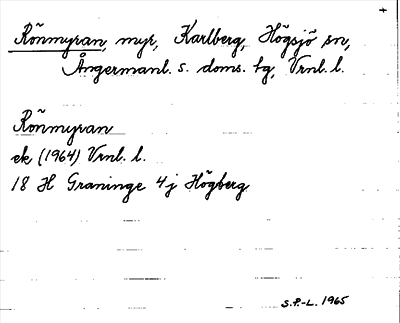 +
Rönmyran, myr, Karlberg, Högsjö sn,
Ångermanl. s. doms. tg, Vrnl. l.
Rönmyran
ek (1964) Vrnl. l.
18 H Graninge 4j Högberg
S.P.-L. 1965